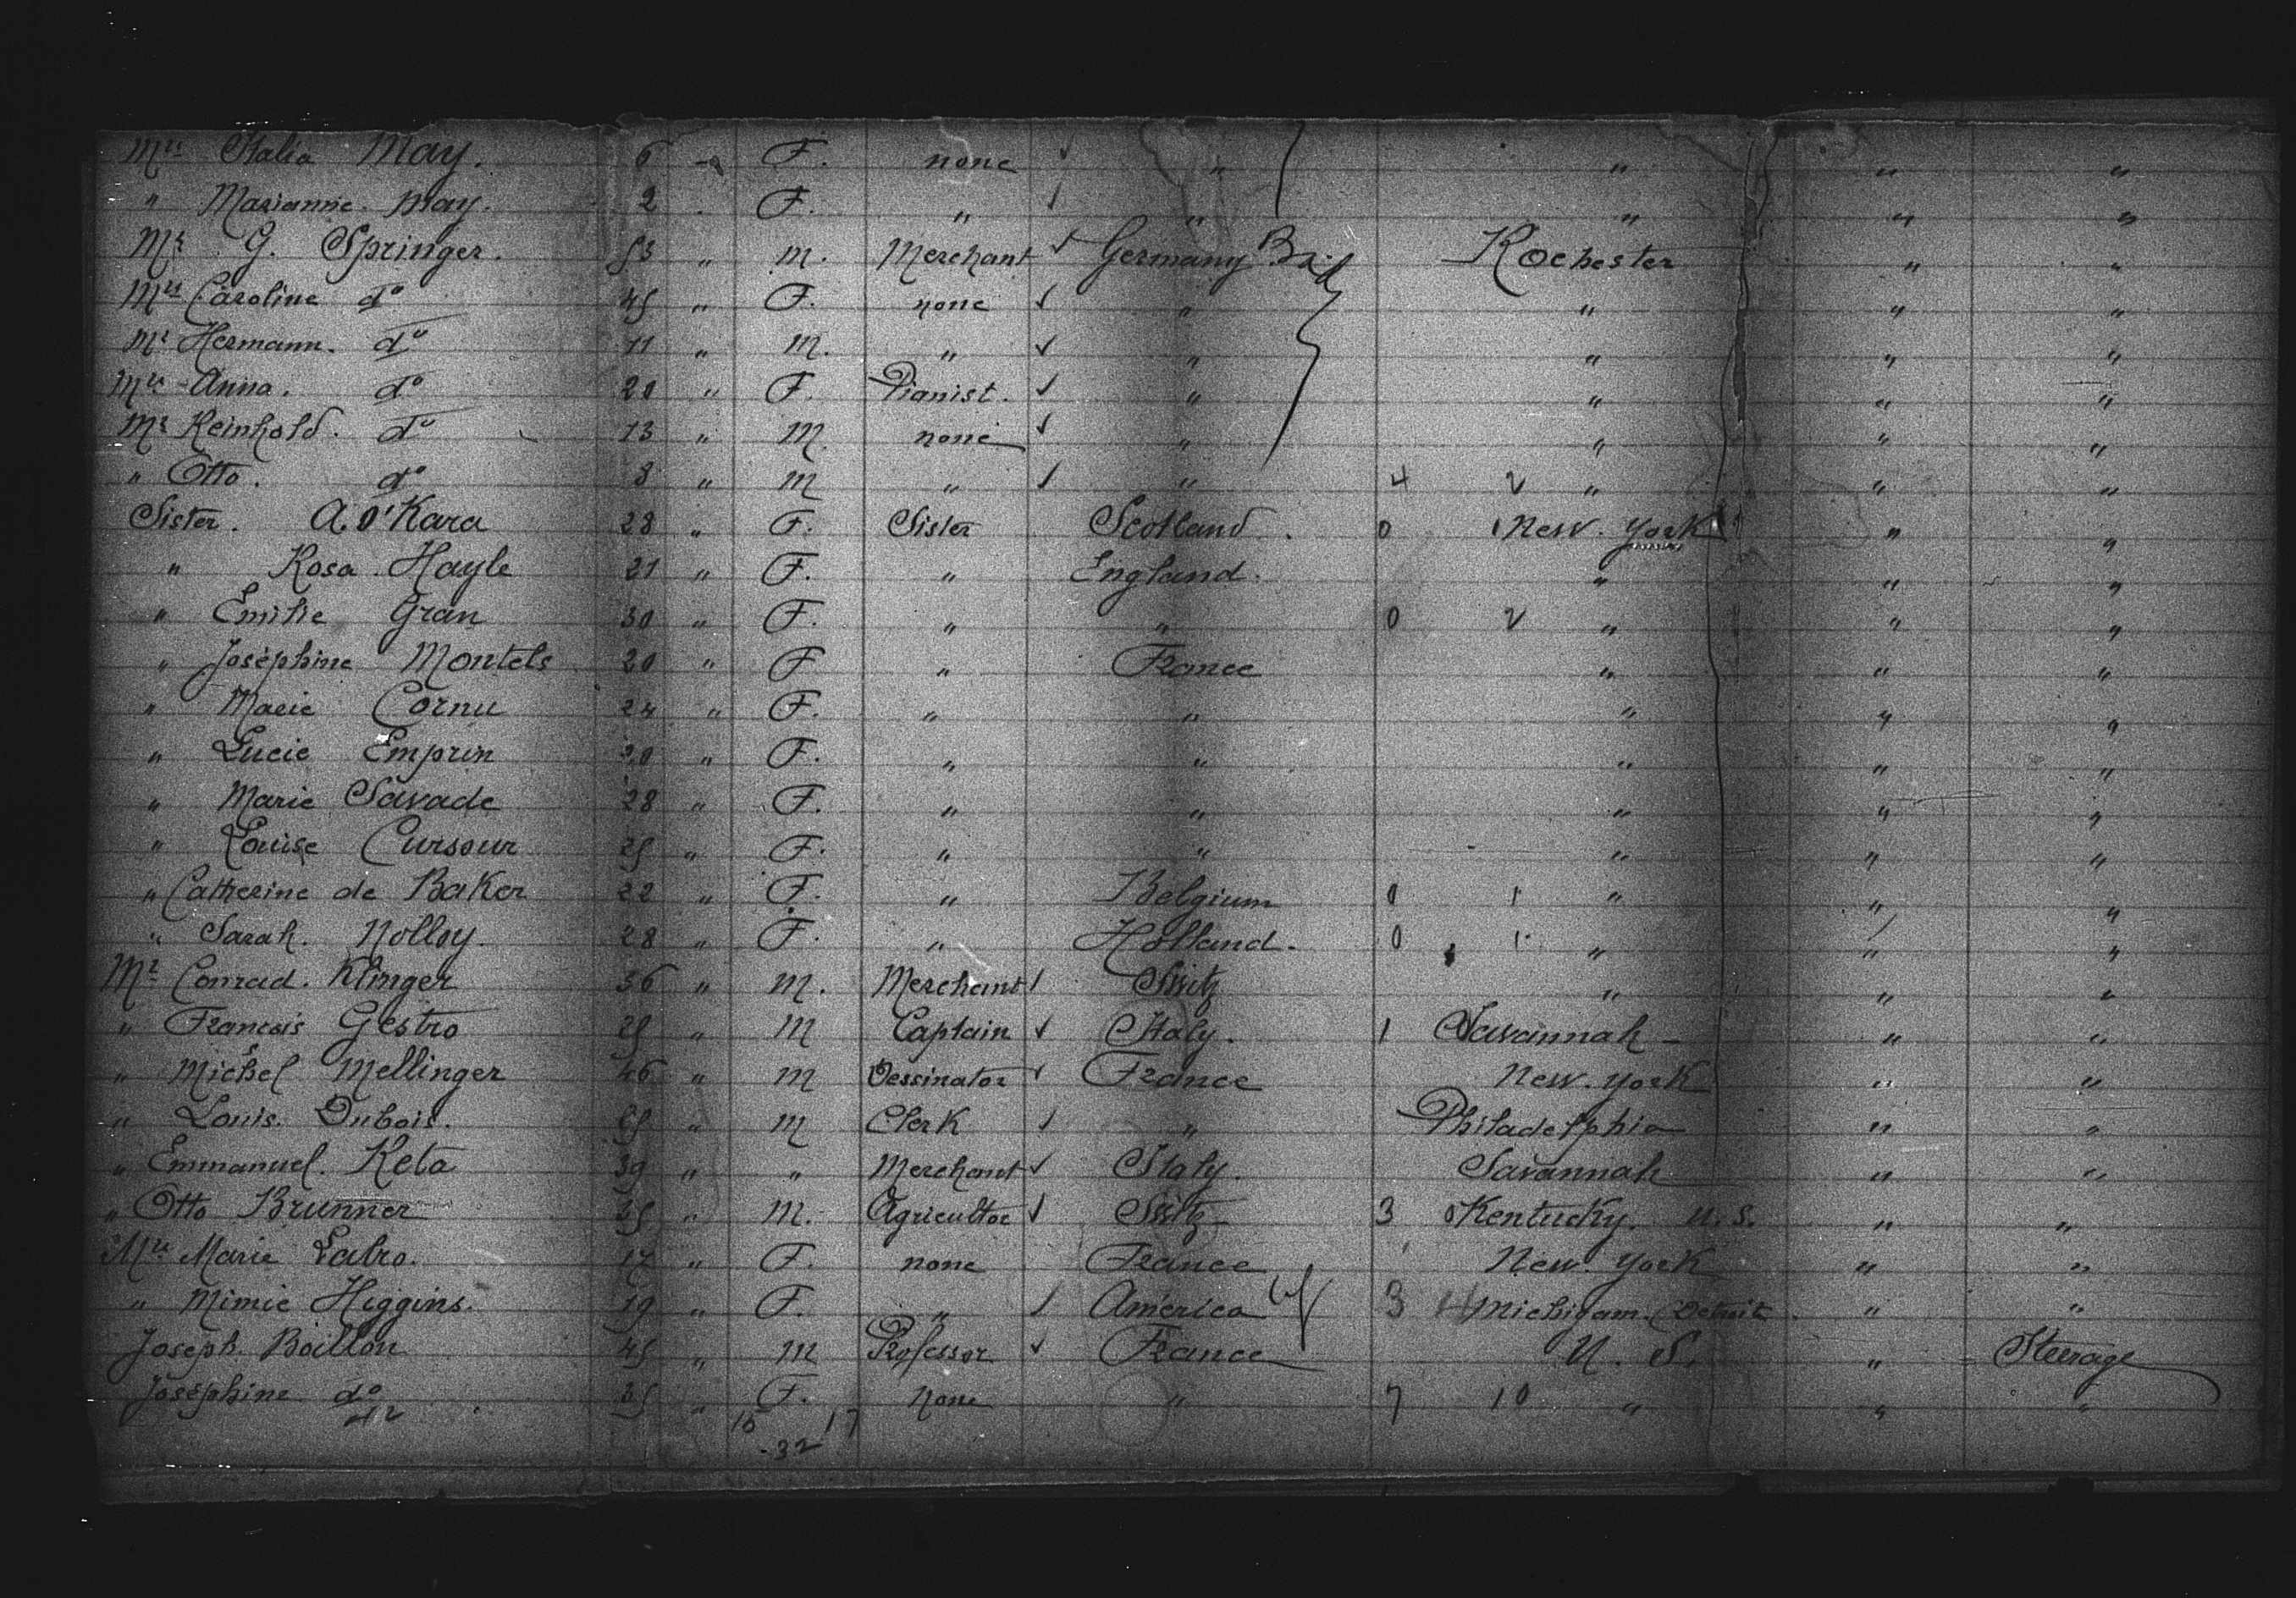 Mlle Italia May. 6 " F. none ✓ " " " "
" Marianne May. 2 . F. " ✓ " " " "
Mr G. Springer. 53 " M. Merchant ✓ Germany Rochester " "
Mme Caroline do 45 " F. none ✓ " " " "
Mr Hermann. do 11 " M. " ✓ " " " "
Mlle Anna. do 20 " F. Pianist. ✓ " " " "
Mr Reinhold. do 13 " M. none ✓ " " " "
" Otto. do 8 " M " ✓ " 4 2 " " "
Sister. A. O'Kara 28 " F. Sister Scotland. 0 1 New. York " "
" Rosa Hayle 21 " F. " England. " " "
" Emilie Gran 30 " F. " " 0 2 " " "
" Joséphine Montels 20 " F " France " " "
" Marie Cornu 24 " F. " " " " "
" Lucie Emprin 20 " F. " " " " "
" Marie Savade 28 " F. " " " " "
" Louise Cursour 25 " F. " " " " "
" Catherine de Baker 22 " F. " Belgium 0 1 " " "
" Sarah. Nolloy. 28 " F. " Holland. 0 1 " " "
Mr Conrad. Klinger 36 " M. Merchant ✓ Switz " " "
" Francois Gestro 25 " M Captain ✓ Italy. 1 Savannah " "
" Michel Mellinger 46 " M Dessinator ✓ France New. York " "
" Louis. Dubois. " M Clerk ✓ " Philadelphia " "
" Emmanuel. Keta 39 " " Merchant ✓ Italy. Savannah " "
" Otto Brunner " M. Agricultor ✓ Switz 3 0 Kentucky. U.S. " "
Mlle Marie Labro. 17 " F. none France New. York " "
" Mimie Higgins. 19 " F. " ✓ América 3 4 Michigam. Detroit " "
Joseph. Boillon 45 " M Professor ✓ France U. S. " Steerage
Joséphine do 35 " F. None " 7 10 " " "
42 15 17
32